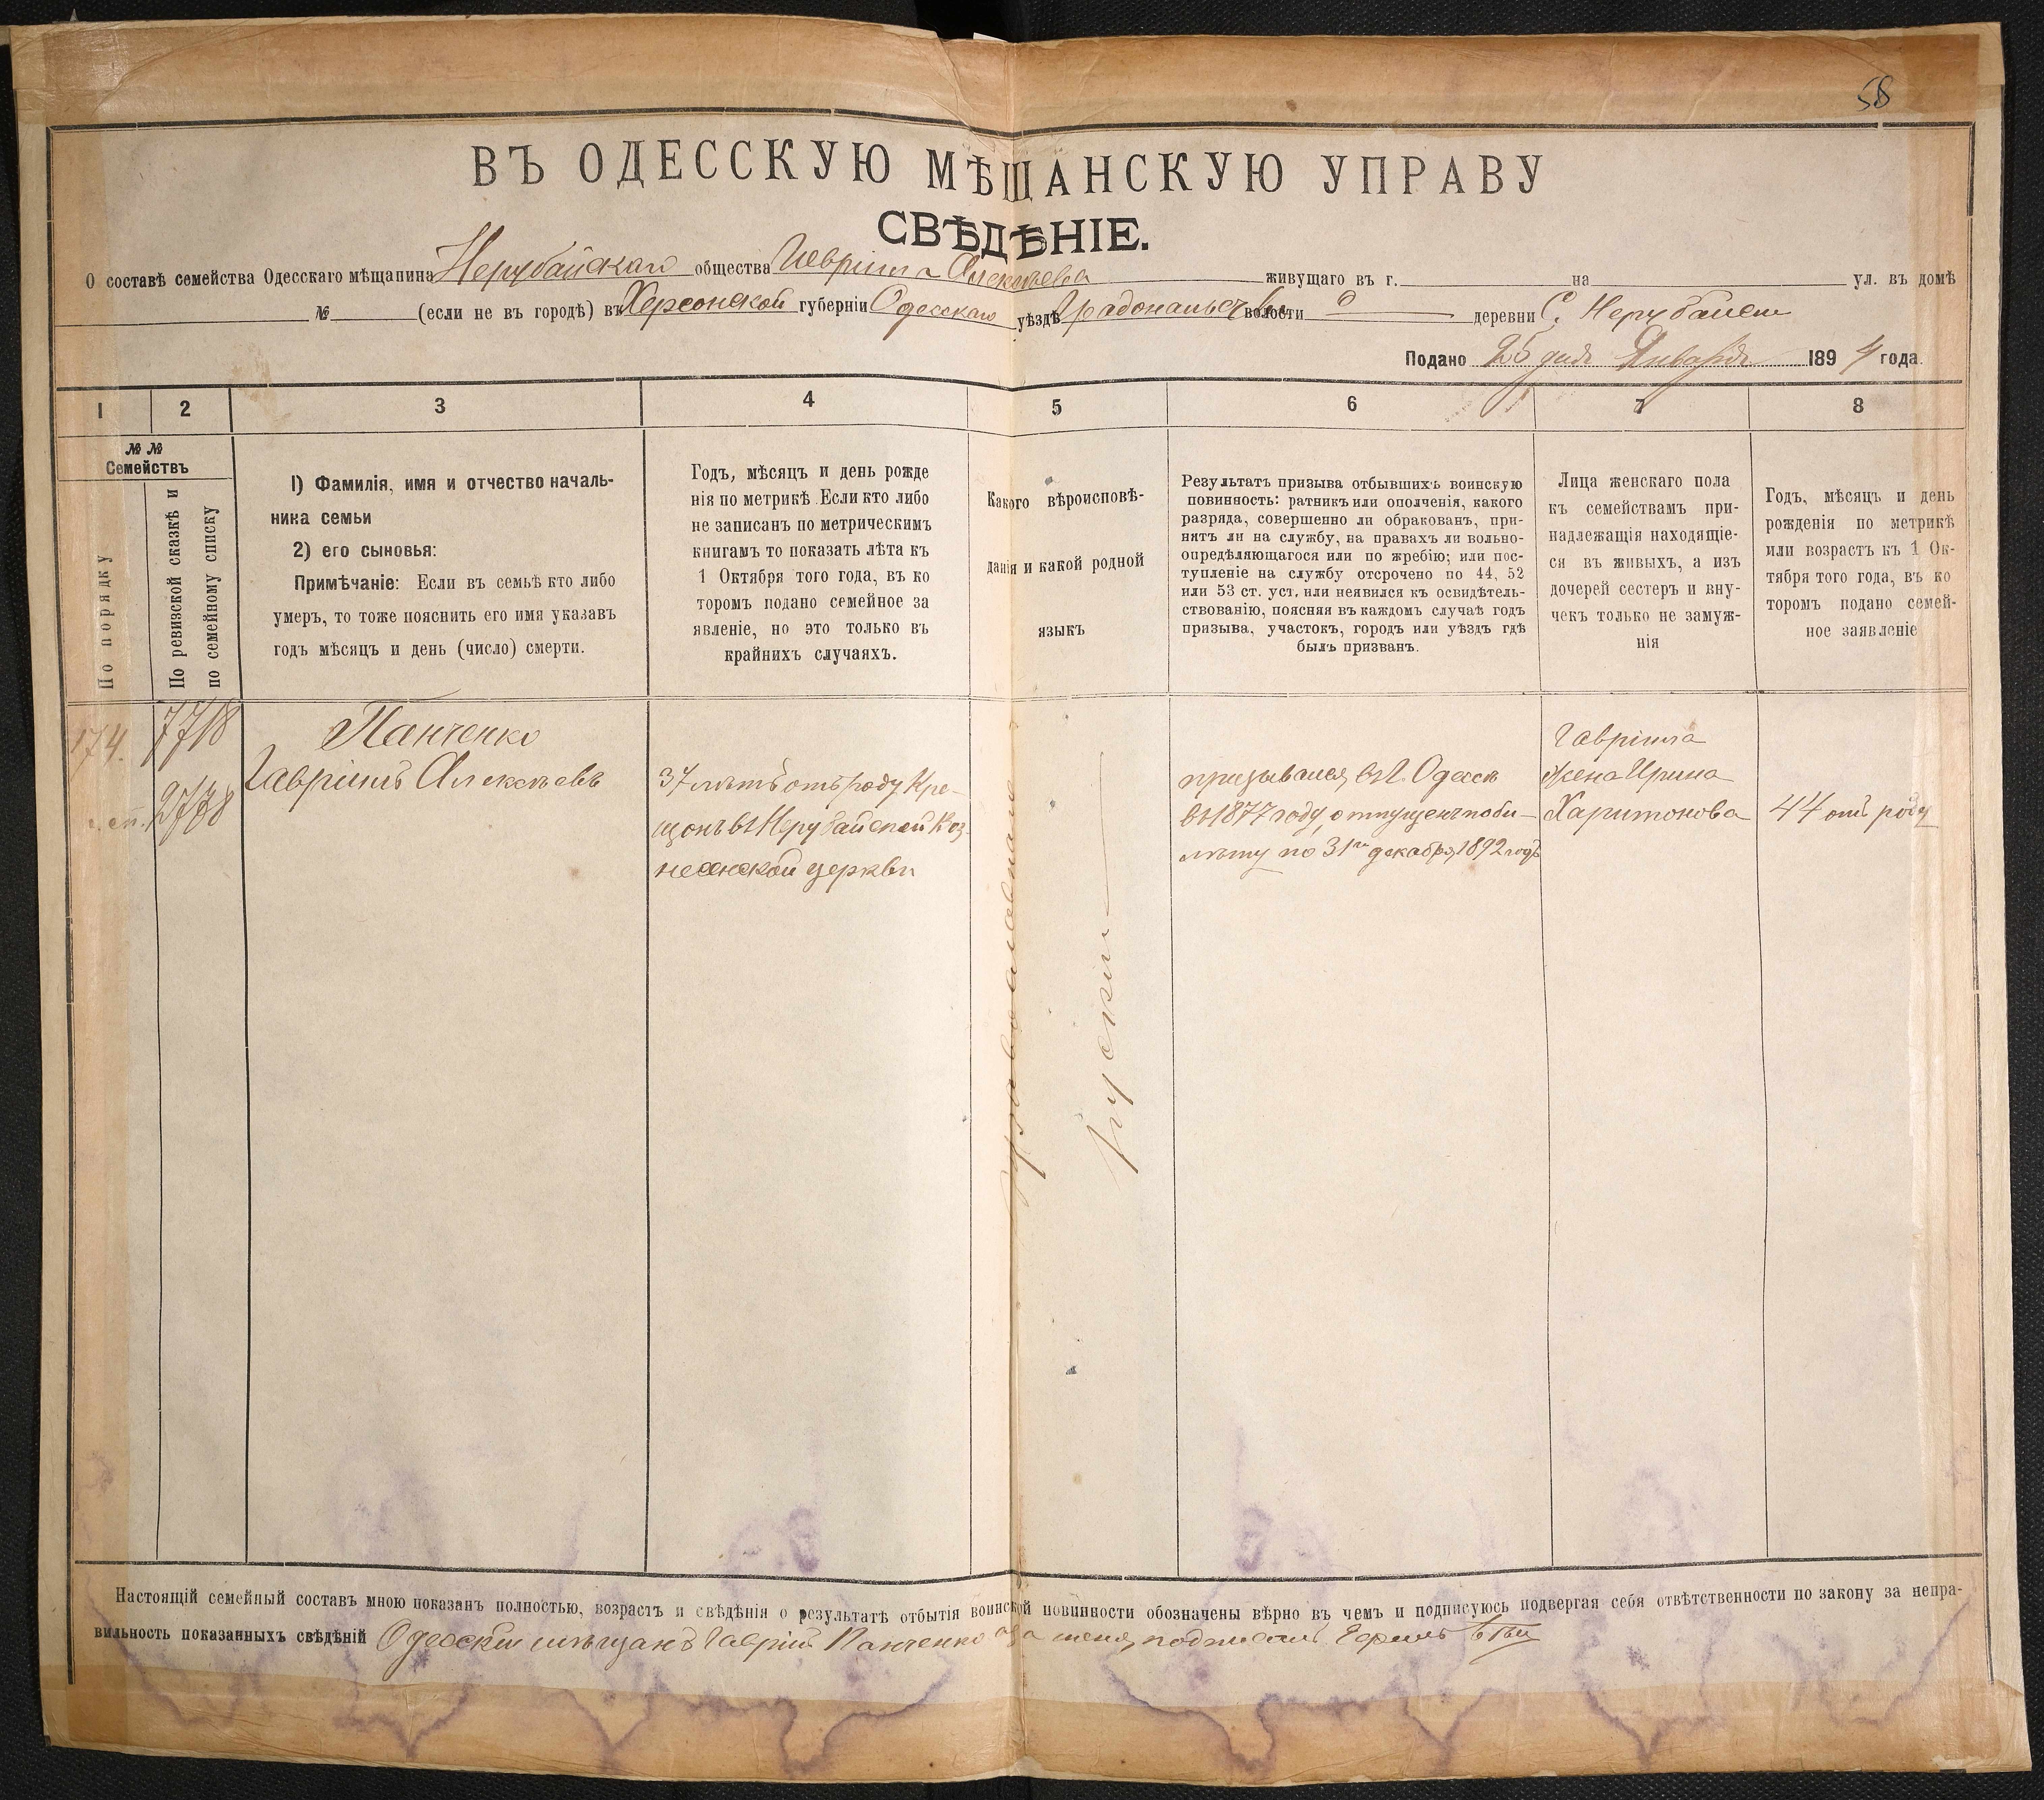 58
ВЪ ОДЕССКУЮ МѢЩАНСКУЮ УПРАВУ
СВѢДѢНІЕ.
О составѣ семейства Одесскаго мѣщанина Нерубайскаго общества Гавріила Алексѣева живущаго въ г. на ул. въ домѣ
№ (если не въ городѣ) въ Херсонской губерніи Одесскаго уѣздѣ волости деревни С. Нерубаевъ
Подано 25 дня Января 1894 года.
1 2 3 4 5 6 7 8
№ №
Семействъ
По порядку
По ревизской сказкѣ и
по семейному списку
1) Фамилія, имя и отчество началь-
ника семьи
2) его сыновья:
Примѣчаніе: Если въ семьѣ кто либо
умеръ, то тоже пояснить его имя указавъ
годъ мѣсяцъ и день (число) смерти.
Годъ, мѣсяцъ и день рожде
нія по метрикѣ Если кто либо
не записанъ по метрическимъ
книгамъ то показать лѣта къ
1 Октября того года, въ ко
торомъ подано семейное за
явленіе, но это только въ
крайнихъ случаяхъ.
Какого вѣроисповѣ-
данія и какой родной
языкъ
Результатъ призыва отбывшихъ воинскую
повинность: ратникъ или ополченія, какого
разряда, совершенно ли обракованъ, при-
нятъ ли на службу, на правахъ ли вольно-
опредѣляющагося или по жребію; или пос-
тупленіе на службу отсрочено по 44, 52
или 53 ст. уст. или неявился къ освидѣтель-
ствованію, поясняя въ каждомъ случаѣ годъ
призыва, участокъ, городъ или уѣздъ гдѣ
былъ призванъ.
Лица женскаго пола
къ семействамъ при-
надлежащія находящіе-
ся въ живыхъ, а изъ
дочерей сестеръ и вну-
чекъ только не замуж-
нія
Годъ, мѣсяцъ и день
рожденія по метрикѣ
или возрастъ къ 1 Ок-
тября того года, въ ко
торомъ подано семей-
ное заявленіе
174.
7718
2738
Панченко
Гавріилъ Алексѣевъ
37 лѣтъ отъ роду Кре-
щонъ въ Нерубайской Воз
несенской церкви
православнаго
русскій
призывался въ г. Одессѣ
въ 1877 году, отпущенъ по би-
лету по 31го декабря 1892 годъ
Гавріила
жена Ирина
Харитонова
44 отъ роду
Настоящій семейный составъ мною показанъ полностью, возрастъ и свѣдѣнія о результатѣ отбытія воинской повинности обозначены вѣрно въ чемъ и подписуюсь подвергая себя отвѣтственности по закону за непра-
вильность показанныхъ свѣдѣній Одесскій мѣщанъ Гавріилъ Панченко а за меня подписалъ